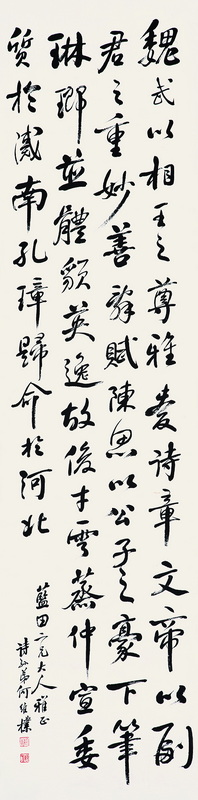 魏武以相王之尊雅愛詩章文帝以副
君之重妙善辭賦陳思以公子之豪下筆
琳瑯並體貌英逸故俊才雲蒸仲宣委
質於漢南孔璋歸命於河北
藍田二兄大人雅正
詩孫弟何維樸